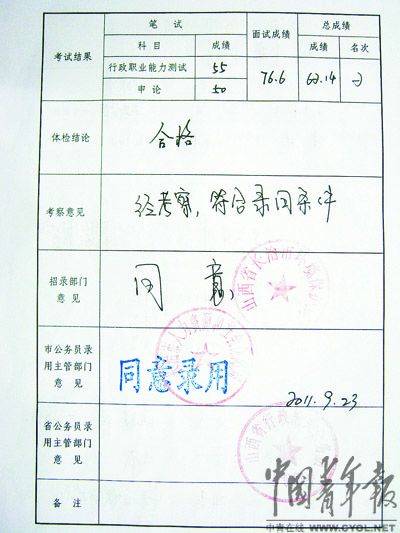 考试结果
笔 试
面试成绩
总成绩
科 目
成绩
成绩
名次
行政职业能力测试
55
76.6
62.14
2
申 论
50
体检结论
合格
考察意见
经考察,符合录用条件
招录部门
意 见
同 意
山西省长治市
市公务员录
用主管部门
意 见
同意录用
2011.9.23
省公务员录
用主管部门
意 见
备 注
中国青年报
中青在线 WWW.CYOL.NET